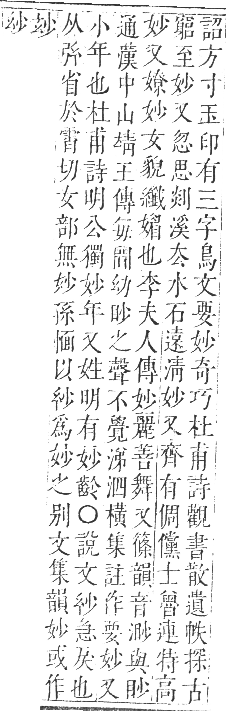 詔方寸玉印有三字鳥文要妙奇巧杜甫詩觀書散遺帙探古
窮至妙又忽思剡溪去水石遠清妙又齊有倜儻士魯連特高
妙又嫽妙女貌纖媚也李夫人傳妙麗善舞又篠韻音渺與眇
通漢中山靖王傳每聞幼眇之聲不覺涕泗橫集註作要妙又
小年也杜甫詩明公獨妙年又姓明有妙齡○說文玅急戾也
从弥省於霄切女部無妙孫愐以玅爲妙之别文集韻妙或作
玅